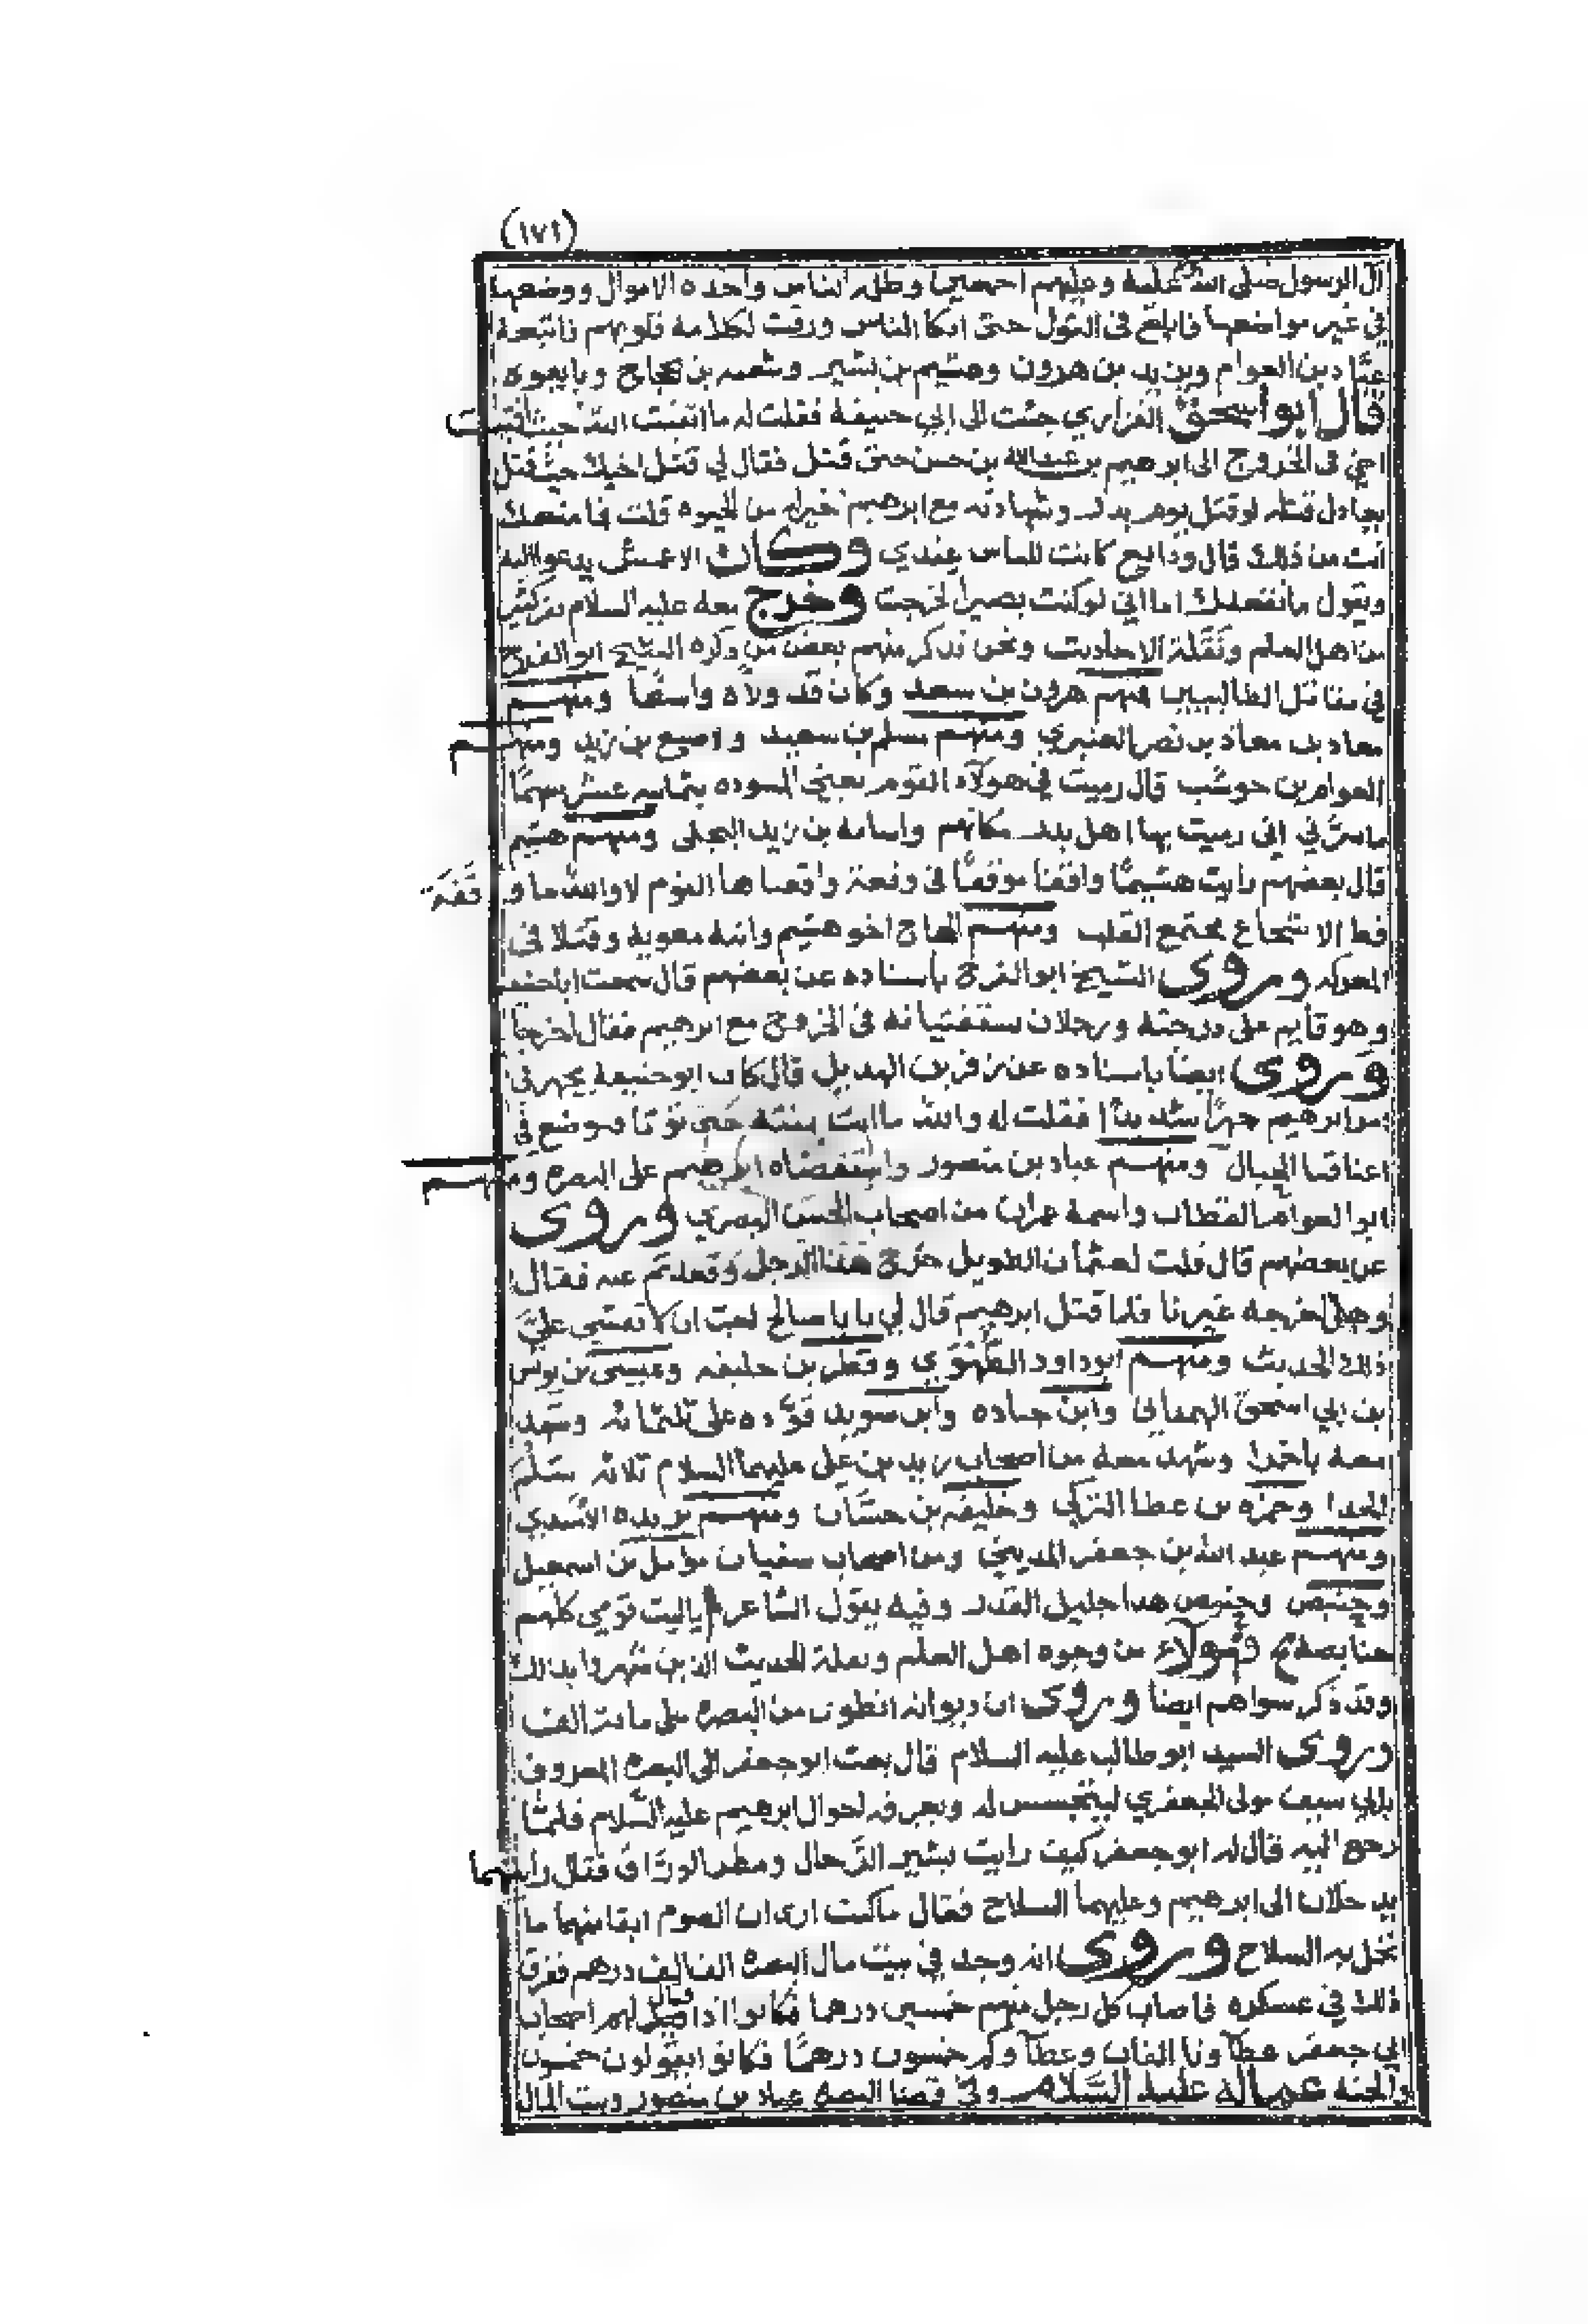 (١٧٦)
ال الرسول صلى الله عليه وعليهم اجمعين وظلم الناس واخذه الاموال ووضعها
في غير مواضعها فابلغ فى القول حتى ابكا الناس ورقت لكلامه قلوبهم فاتبعه
عباد بن العوام ويزيد بن هرون وهشيم بن بشير وشعبه بن الحجاج وبايعوه
قال ابو اسحق الفزاري جئت الى ابي حنيفة فقلت له ما اتقيت الله حيث افتيت
اخي فى الخروج الى ابرهيم بن عبدالله بن حسن حتى قتل فقال لي قتل اخيك حيث قتل
يعادل قتله لو قتل يوم بدر وشهادته مع ابرهيم خير له من الحيوه قلت فما منعك
انت من ذلك قال ودايع كانت للناس عندي وكان الاعمش يدعو اليه
ويقول ما يقعدك اما اني لو كنت بصيرا لخرجت وخرج معه عليه السلام بشر كثير
من اهل العلم ونقلة الاحاديث ونحن نذكر منهم بعض من ذكره الشيخ ابو الفرج
في مقاتل الطالبيين فمنهم هرون بن سعد وكان قد ولاه واسطا ومنهم
معاذ بن معاذ بن نصر العنبري ومنهم مسلم بن سعيد واصبغ بن زيد ومنهم
العوام بن حوشب قال رميت في هولاء القوم يعني المسوده بثمانيه عشر سهما
ما سرني اني رميت بها اهل بدر مكانهم واسامه بن زيد البجلى ومنهم هشيم
قال بعضهم رايت هشيما واقفا موقفا فى وقعة واقعها القوم لا والله ما وقفه
قط الا شجاع مجتمع القلب ومنهم الحجاج اخو هشيم وابنه معوية وقتلا فى
المعركه وروى الشيخ ابو الفرج باسناده عن بعضهم قال سمعت ابا حنيفه
وهو قايم على درجته ورجلان يستفتيانه فى الخروج مع ابرهيم فقال اخرجا
وروى ايضا باسناده عن زفر بن الهذيل قال كان ابو حنيفة يجهر فى
امر ابرهيم جهرا شديدا فقلت له والله ما انت بمنته حتى نوتا فتوضع فى
اعناقنا الحبال ومنهم عباد بن منصور واستقضاه ابرهيم على البصره ومنهم
ابو العوام القطان واسمه عمران من اصحاب الحسن البصري وروى
عن بعضهم قال قلت لعثمان الطويل خرج هذا الرجل وقعدتم عنه فقال
وهل اخرجه غيرنا فلما قتل ابرهيم قال لي يا با صالح احب ان لا تفشي عليّ
ذلك الحديث ومنهم ابو داود الطهوي وفطر بن خليفه وعيسى بن يونس
بن ابي اسحق الهمداني وابن جناده وابن سويد قوده على ثلثمائه وشهد
معه باخمرا وشهد معه من اصحاب زيد بن علي عليهما السلام ثلاثه سلم
الحذا وحمزه بن عطا التركي وخليفه بن حسان ومنهم بريده الاسدي
ومنهم عبد الله بن جعفر المديني ومن اصحاب سفيان مومل بن اسمعيل
وحنبص وحنبص هذا جليل القدر وفيه يقول الشاعر يا ليت قومي كلهم
حنابصا فهولاء من وجوه اهل العلم ونقلة الحديث الذين شهروا بذلك
وقد ذكر سواهم ايضا وروى ان ديوانه انطوى من البصره على مائة الف
وروى السيد ابو طالب عليه السلام قال بعث ابو جعفر الى البصرة المعروف
بابي سيف مولى الجعفري ليتجسس له ويعرفه احوال ابرهيم عليه السلام فلما
رجع اليه قال له ابو جعفر كيف رايت بشير الرحال ومطر الوراق فقال رايتهما
يدخلان الى ابرهيم وعليهما السلاح فقال ما كنت ارى ان الصوم ابقا منهما ما
يحمل به السلاح وروى انه وجد في بيت مال البصره الف الف درهم ففرق
ذلك في عسكره فاصاب كل رجل منهم خمسين درهما فكانوا اذا قيل لهم اصحاب
ابي جعفر عطاونا الفان وعطاوكم خمسون درهما فكانوا يقولون خمسون
والجنه عماله عليه السلام ولي قضا البصره عباد بن منصور وبيت المال